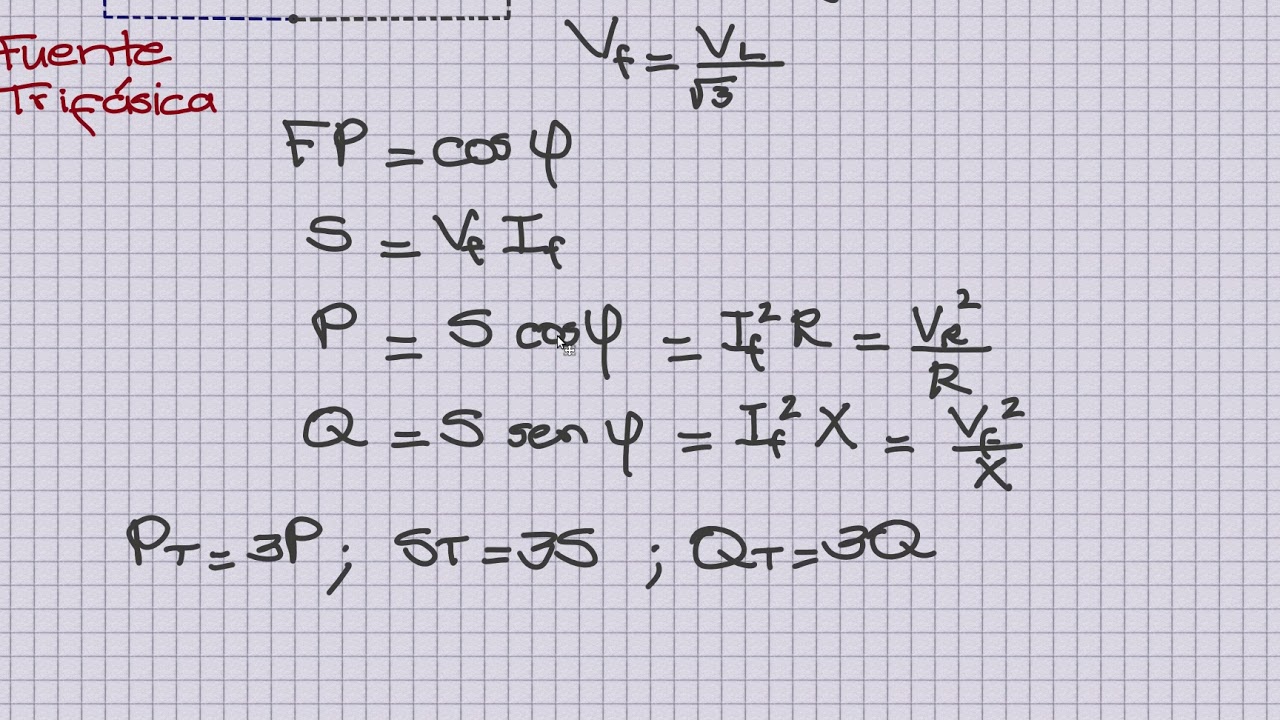 Fuente
Trifásica
V_f = V_L / √3
FP = cos φ
S = V_f I_f
P = S cos φ = I_f² R = V_R² / R
Q = S sen φ = I_f² X = V_f² / X
P_T = 3P ; S_T = 3S ; Q_T = 3Q